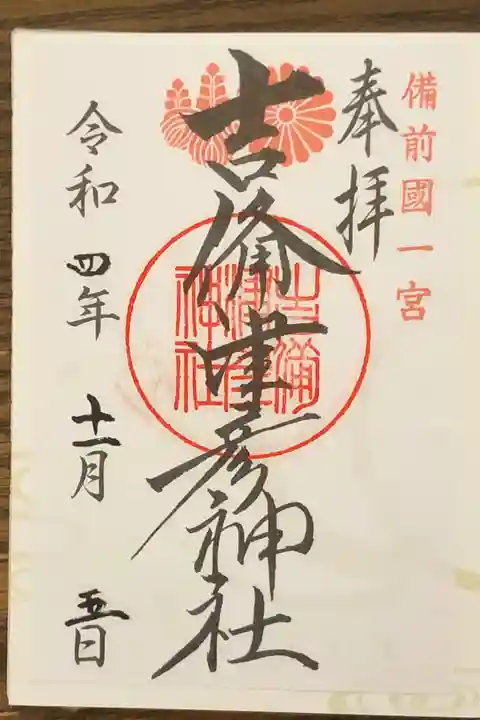 備前國一宮
奉拝
吉備津彦神社
吉備
津彦
神社
令和四年十一月五日